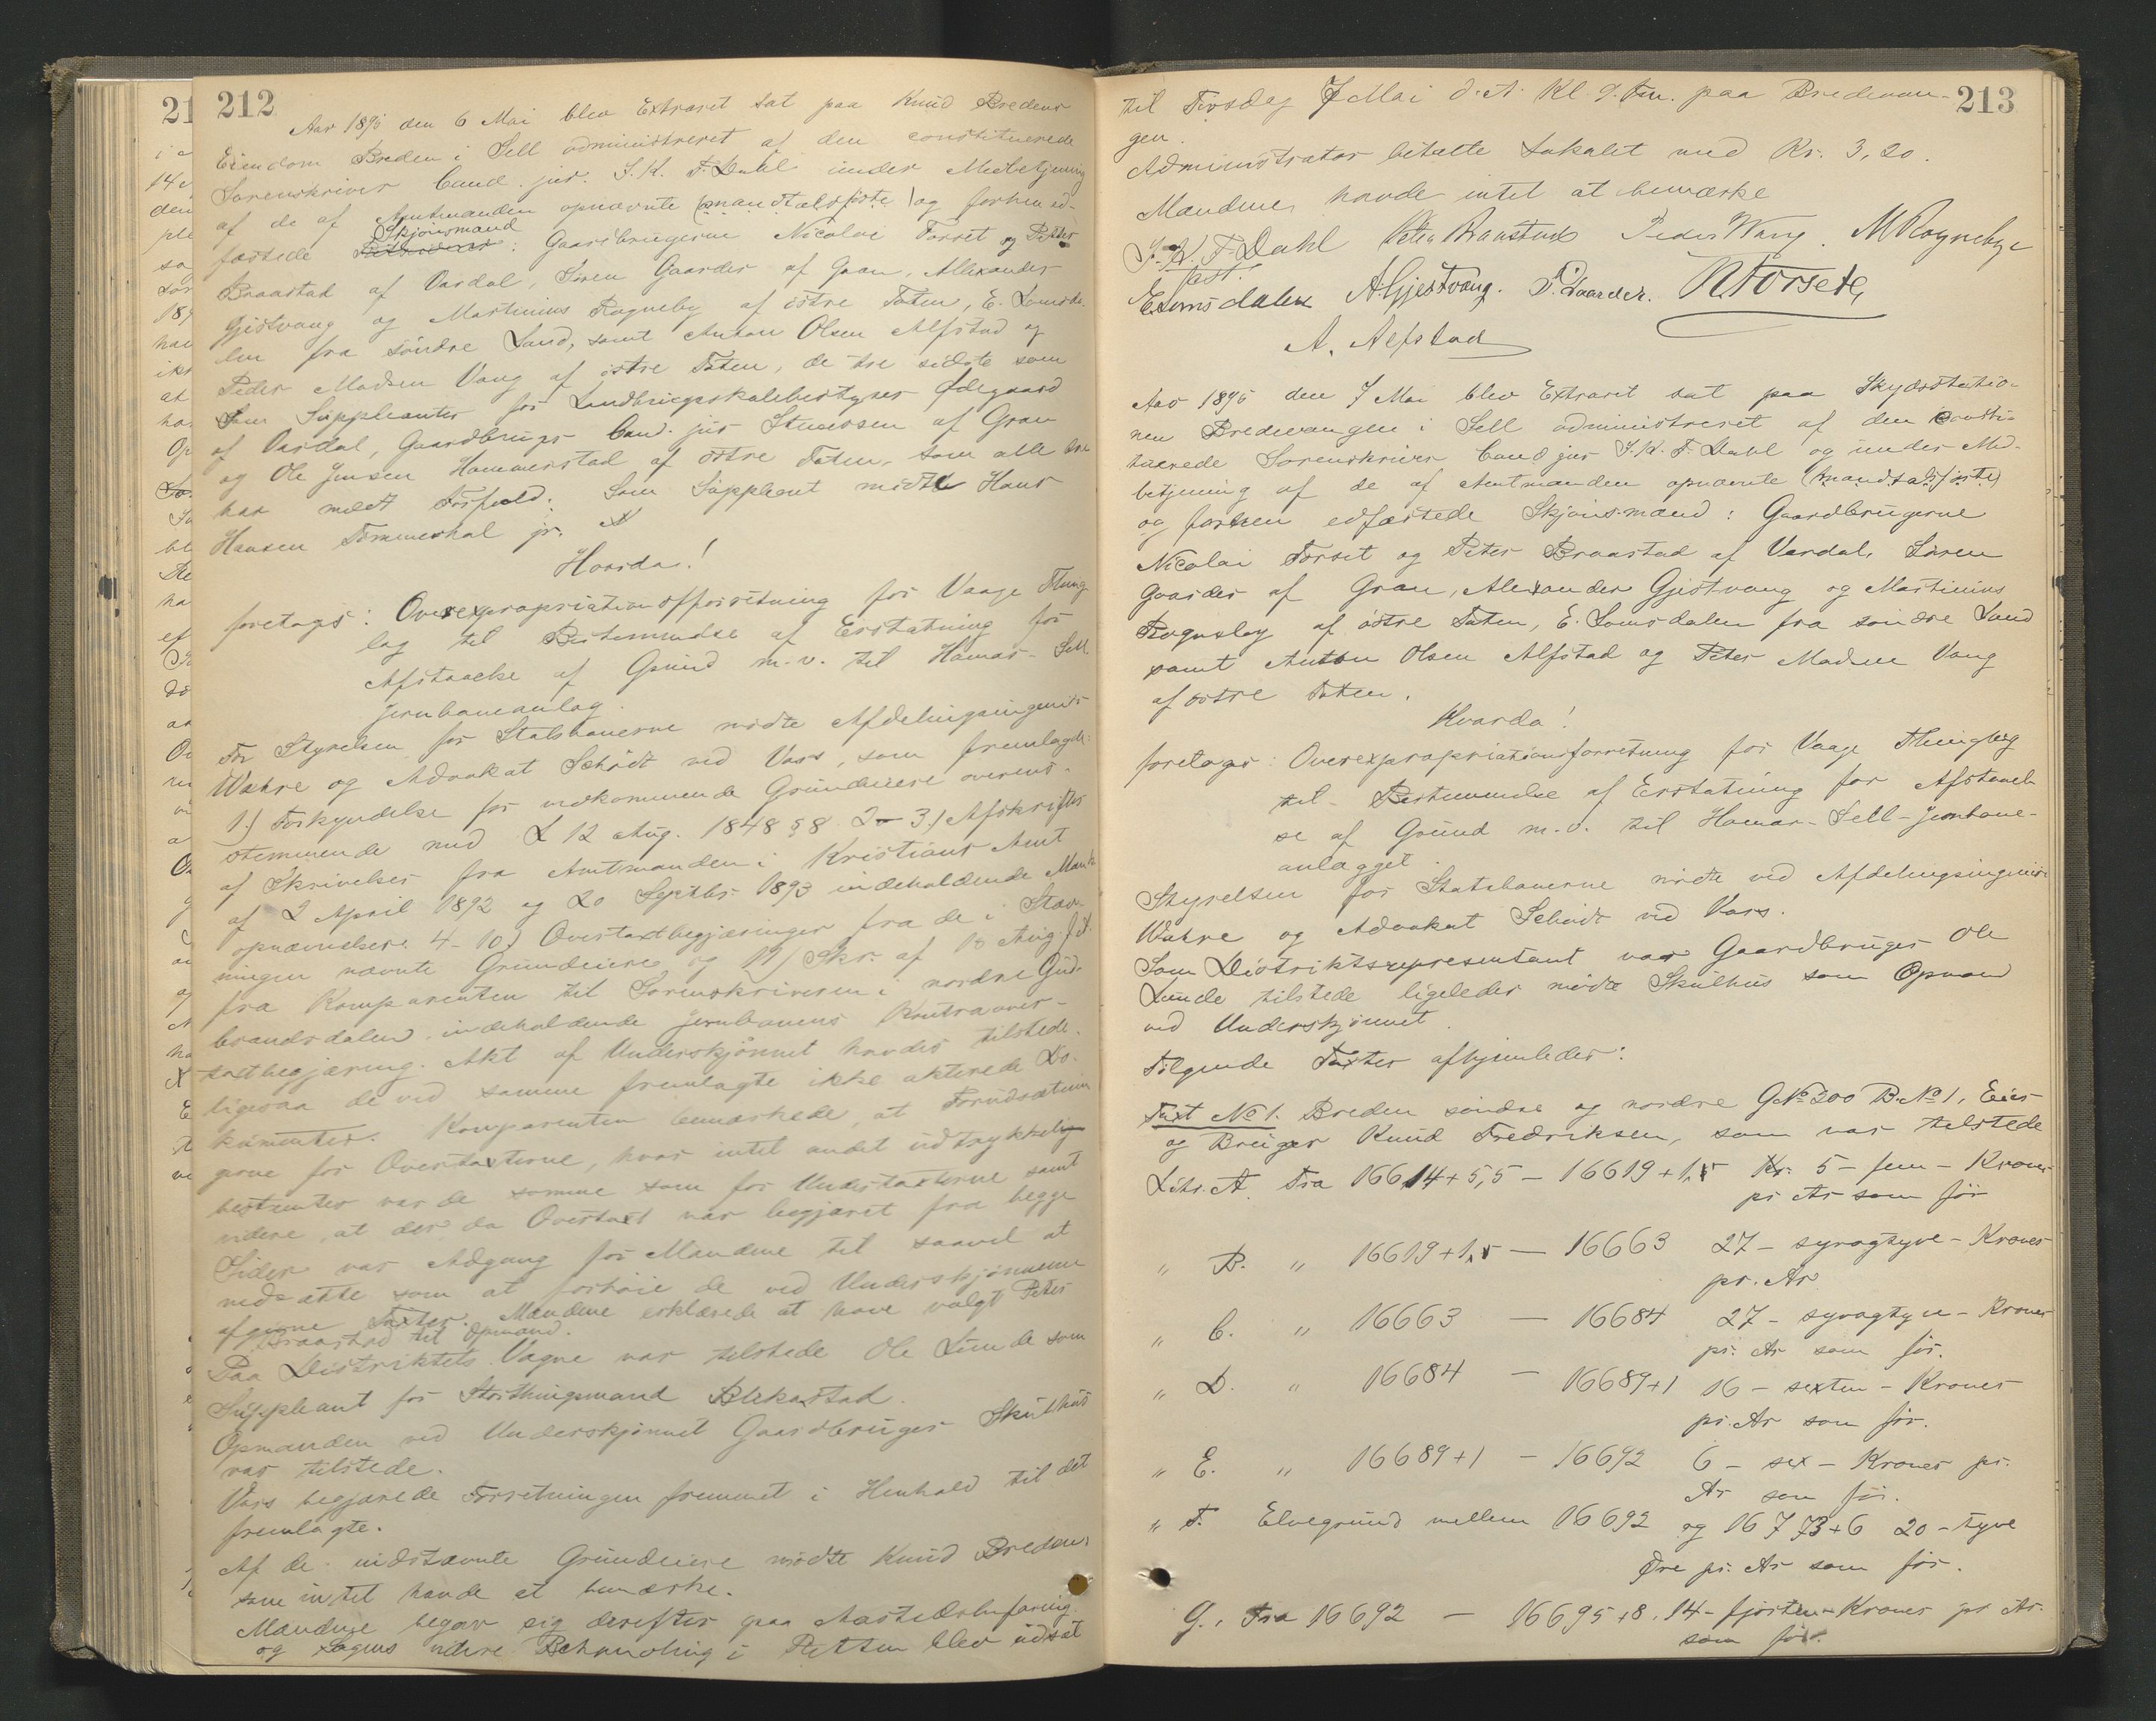 212
Aar 1895 den 6 Mai blev Extraret sat paa Knud Bredens
Eiendom Breden i Sell administreret af den constituerede
Sorenskriver Cand. jur. I. K. F. Dahl under Medbetjening
af de af Amtmanden opnævnte (mandtalsførte) og forhen ed-
Skjønsmænd
fæstede : Gaardbrugerne Nicolai Forset og Peter
Braastad af Vardal, Søren Gaarder af Gran, Allexander
Gjøstvang og Martinius Rogneby af østre Toten, E. Lomsda-
len fra søndre Land, samt Anton Olsen Alfstad og
Peder Madsen Vang af østre Toten, de tre sidste som
Suppleanter for Landbrugsskolebestyrer Ødegaard
af Vardal, Gaardbruger Cand. jur Steenssen af Gran
og Ole Jensen Hammerstad af østre Toten, som alle tre
har mældt Forfald. Som Suppleant mødte Hans
Hansen Tømmerhol jr.
Hvorda!
foretages: Overexpropriationsforretning for Vaage Thing
lag til Bestemmelse af Erstatning for
Afstaaelse af Grund m.v. til Hamar-Sell
Jernbaneanlæg.
For Styrelsen for Statsbanerne mødte Afdelingsingeniør
Wahre og Advokat Schiødt ved Vars, som fremlagde:
1.) Forkyndelse for vedkommende Grundeiere overens-
stemmende med L 12 Aug. 1848 § 8 2-3.) Afskrifter
af Skrivelser fra Amtmanden i Kristians Amt
af 2 April 1892 og 20 Septbr. 1893 indeholdende Mands
opnævnelser. 4-10) Overtaxtbegjæringer fra de i Stæv-
ningen nævnte Grundeiere og 11) Skr. af 18 Aug. f.A.
fra Komparenten til Sorenskriveren i nordre Gud-
brandsdalen indeholdende Jernbanens Kontraover-
taxtbegjæring. Akt af Underskjønnet havdes tilstede.
ligesaa de ved samme fremlagte ikke akterede Do-
kumenter. Komparenten bemærkede, at Forudsætnin
gerne for Overtaxterne, hvor intet andet udtrykkelig
bestemtes var de samme som for Undertaxterne samt
videre, at der da Overtaxt var begjæret fra begge
Sider var Adgang for Mændene til saavel at
nedsætte som at forhøie de ved Underskjønnene
afgivne Taxter. Mændene erklærede at have valgt Peter
Braastad til Opmand.
Paa Distriktets Vegne var tilstede Ole Lunde som
Suppleant for Storthingsmand Blekastad.
Opmanden ved Underskjønnet Gaardbruger Skulhus
var tilstede.
Vars begjærede Forretningen fremmet i Henhold til det
fremlagte.
Af de indstævnte Grundeiere mødte Knud Breden
som intet havde at bemærke.
Mændene begav sig derefter paa Aastedsbefaring
og Sagens videre Behandling i Retten blev udsat
213
til Tirsdag 7 Mai d. A. Kl. 9. Fm. paa Bredevan-
gen.
Administrator betalte Lokalet med Kr. 3,20.
Mændene havde intet at bemærke
I. K. F. Dahl Peter Braastad Peder Wang. M Rognebye
kst.
E Lomsdalen A. Gjøstvang. S. Gaarder. N Forseth,
A. Alfstad
Aar 1895 den 7 Mai blev Extraret sat paa Skydsstatio-
nen Bredevangen i Sell administreret af den Consti-
tuerede Sorenskriver Cand jur I. K. F. Dahl og under Med-
betjening af de af Amtmanden opnævnte (mandtalsførte)
og forhen edfæstede Skjønsmænd: Gaardbrugerne
Nicolai Forset og Peter Braastad af Vardal, Søren
Gaarder af Gran, Alexander Gjøstvang og Martinius
Rognebøy af østre Toten, E. Lomsdalen fra søndre Land
samt Anton Olsen Alfstad og Peter Madsen Vang
af østre Toten.
Hvorda!
foretages: Overexpropriationsforretning for Vaage Thinglag
til Bestemmelse af Erstatning for Afstaael-
se af Grund m.v. til Hamar-Sell-Jernbane-
anlægget.
Styrelsen for Statsbanerne mødte ved Afdelingsingeniør
Wahre og Advokat Schiødt ved Vars.
Som Distriktsrepresentant var Gaardbruger Ole
Lunde tilstede ligeledes mødte Skulhus som Opmand
ved Underskjønnet.
Følgende Taxter afhjemledes:
Taxt No 1. Breden søndre og nordre G.No 200 B.No 1, Eier
og Bruger Knud Fredriksen, som var tilstede
Litr. A. Fra 16614+5,5 – 16619+1,5 Kr. 5 – fem – Kroner
pr Ar som før
" B. " 16619+1,5 – 16663 27 – syvogtyve – Kroner
pr. Ar
" C. " 16663 – 16684 27 – syvogtyve – Kroner
pr. Ar som før.
" D. " 16684 – 16689+1 16 – sexten – Kroner
pr. Ar som før.
" E. " 16689+1 – 16692 6 – sex – Kroner pr.
Ar som før.
" F. Elvegrund mellem 16692 og 16773+6 20 – tyve
Øre pr. Ar som før.
G., Fra 16692 – 16695+8, 14 – fjorten – Kroner pr Ar.
som før.